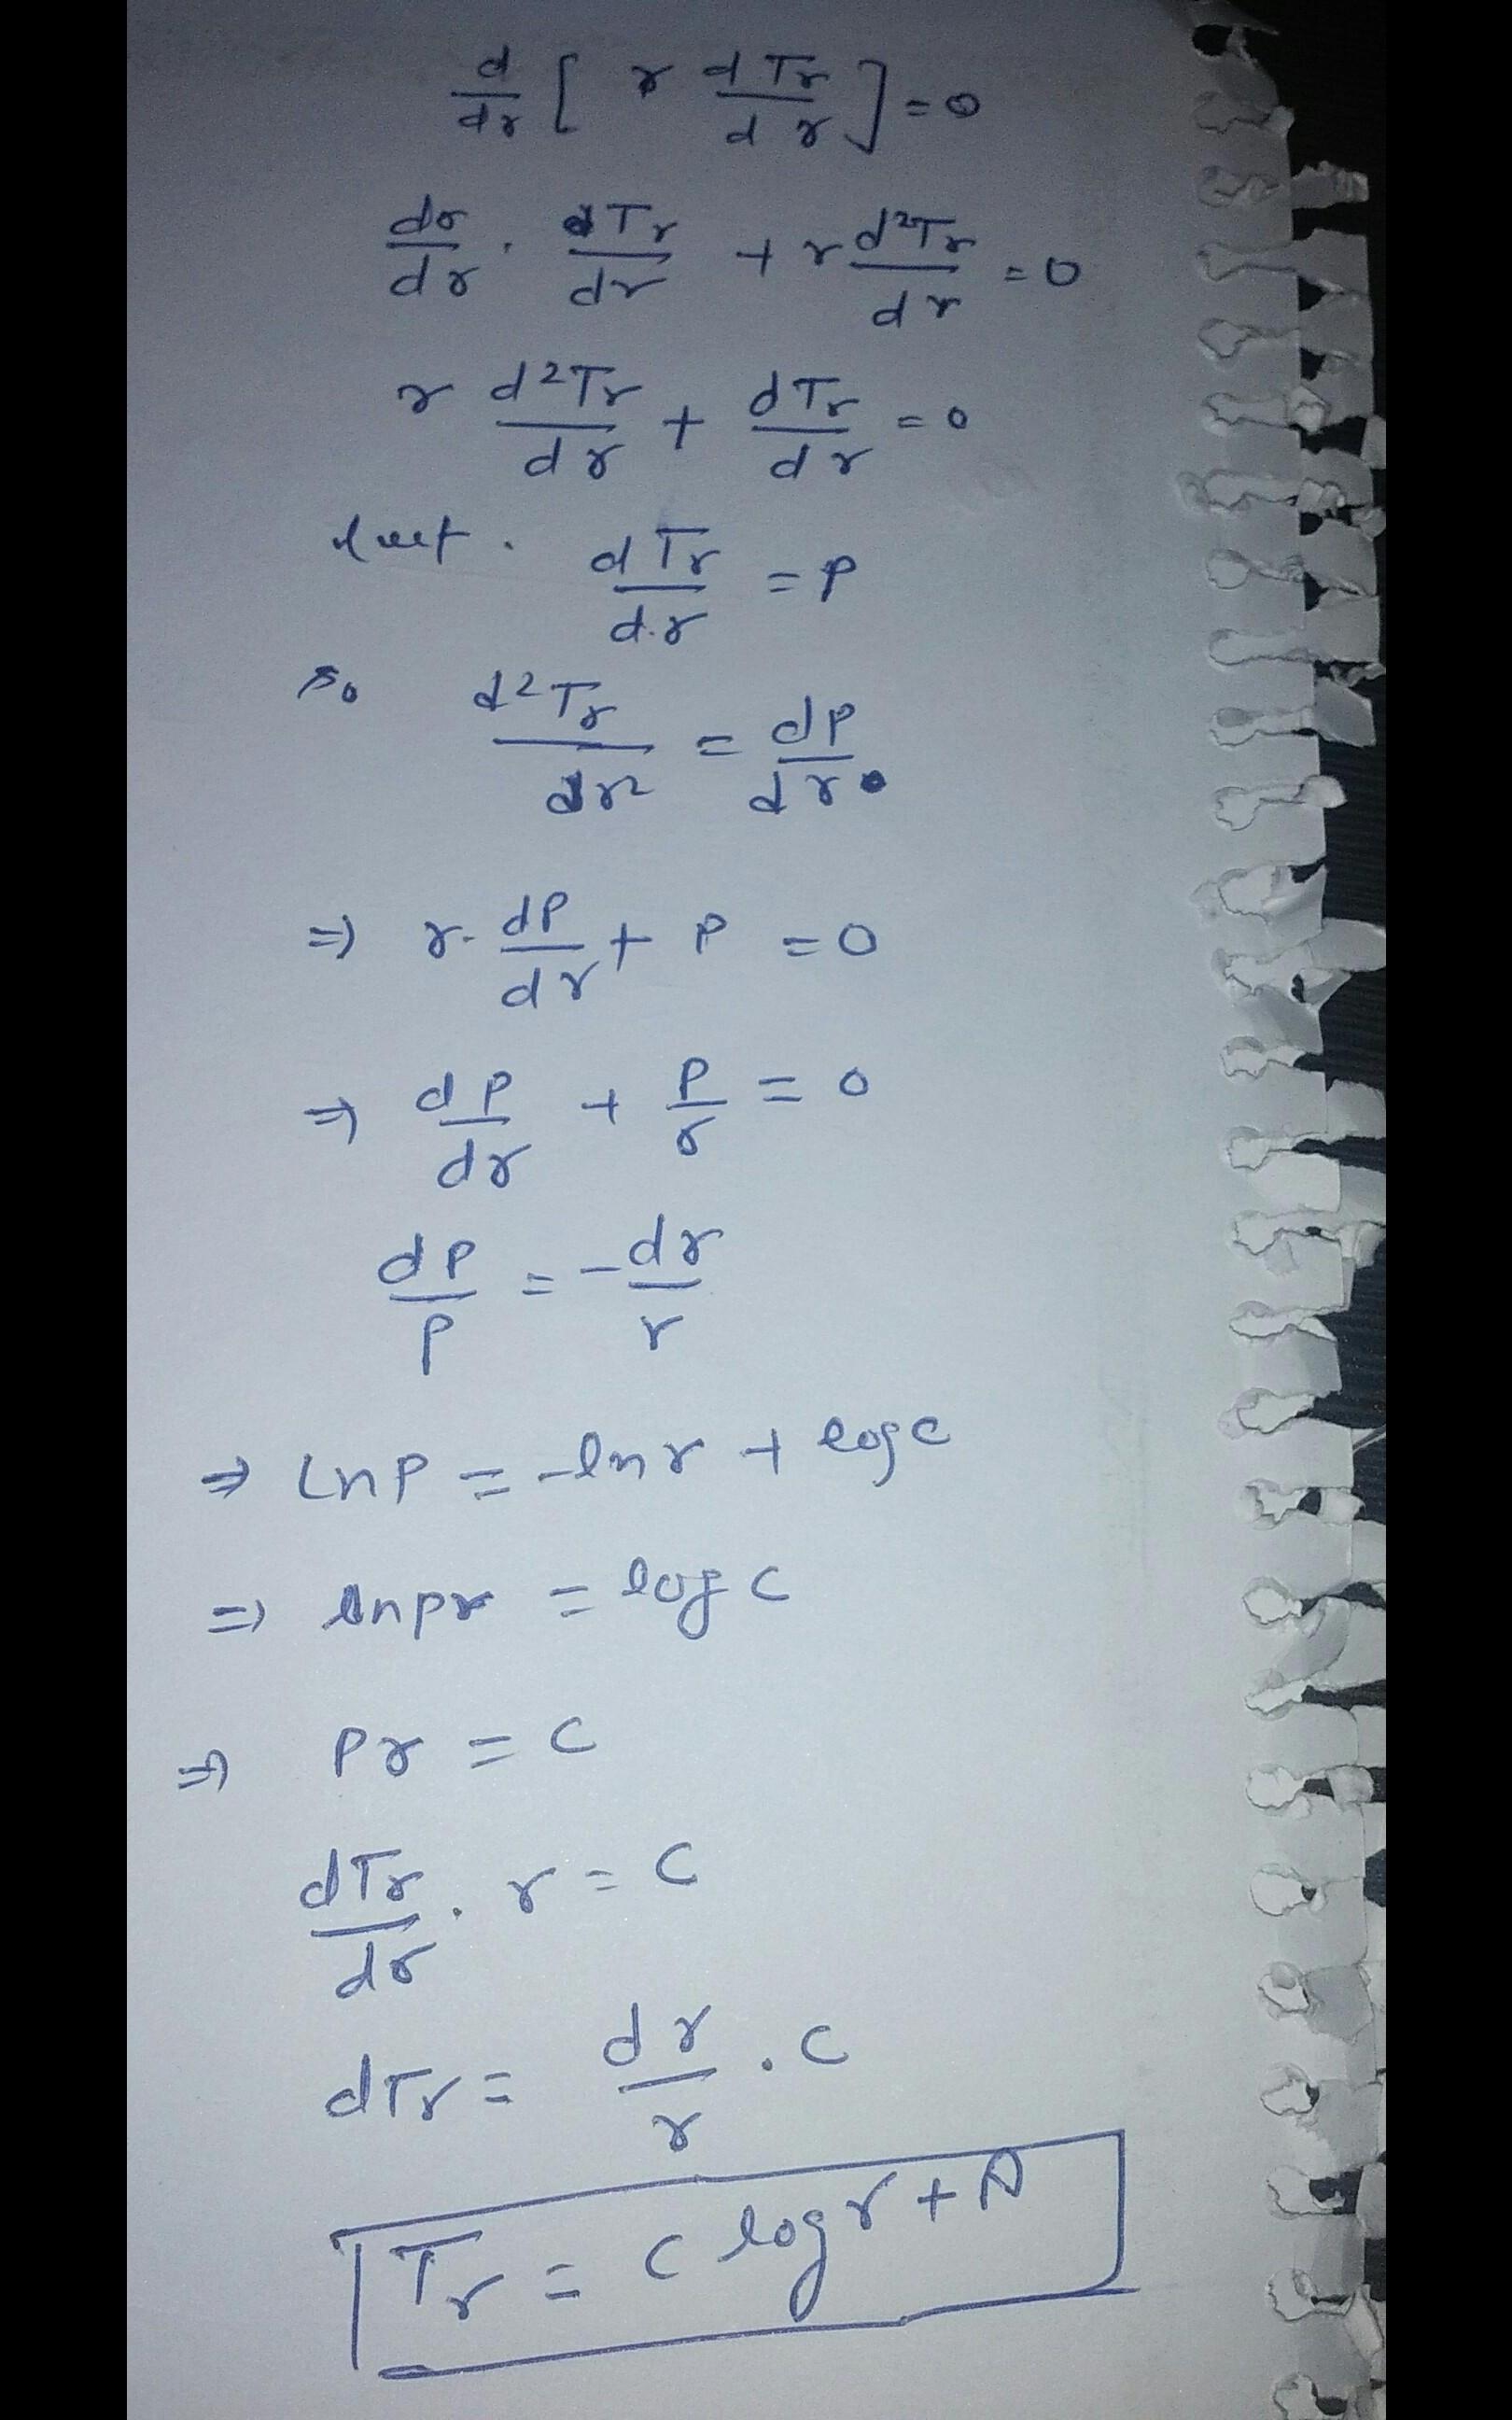 d/dr [ r dTr/dr ] = 0
dr/dr . dTr/dr + r d²Tr/dr = 0
r d²Tr/dr + dTr/dr = 0
dTr/d.r = P
So d²Tr/dr² = dP/dr
⇒ r. dP/dr + P = 0
⇒ dP/dr + P/r = 0
dP/P = - dr/r
⇒ LnP = -lnr + logc
⇒ lnpr = log c
⇒ Pr = C
dTr/dr . r = C
dTr = dr/r . C
Tr = C log r + A